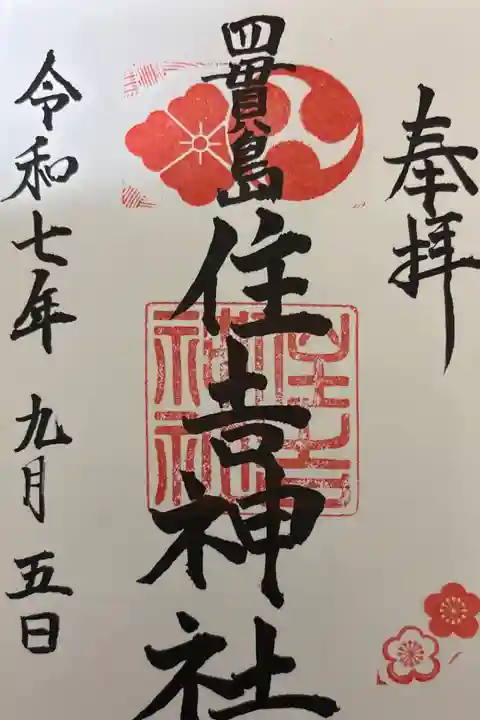 奉拝
四貫島
住吉神社
住吉神社
令和七年 九月 五日